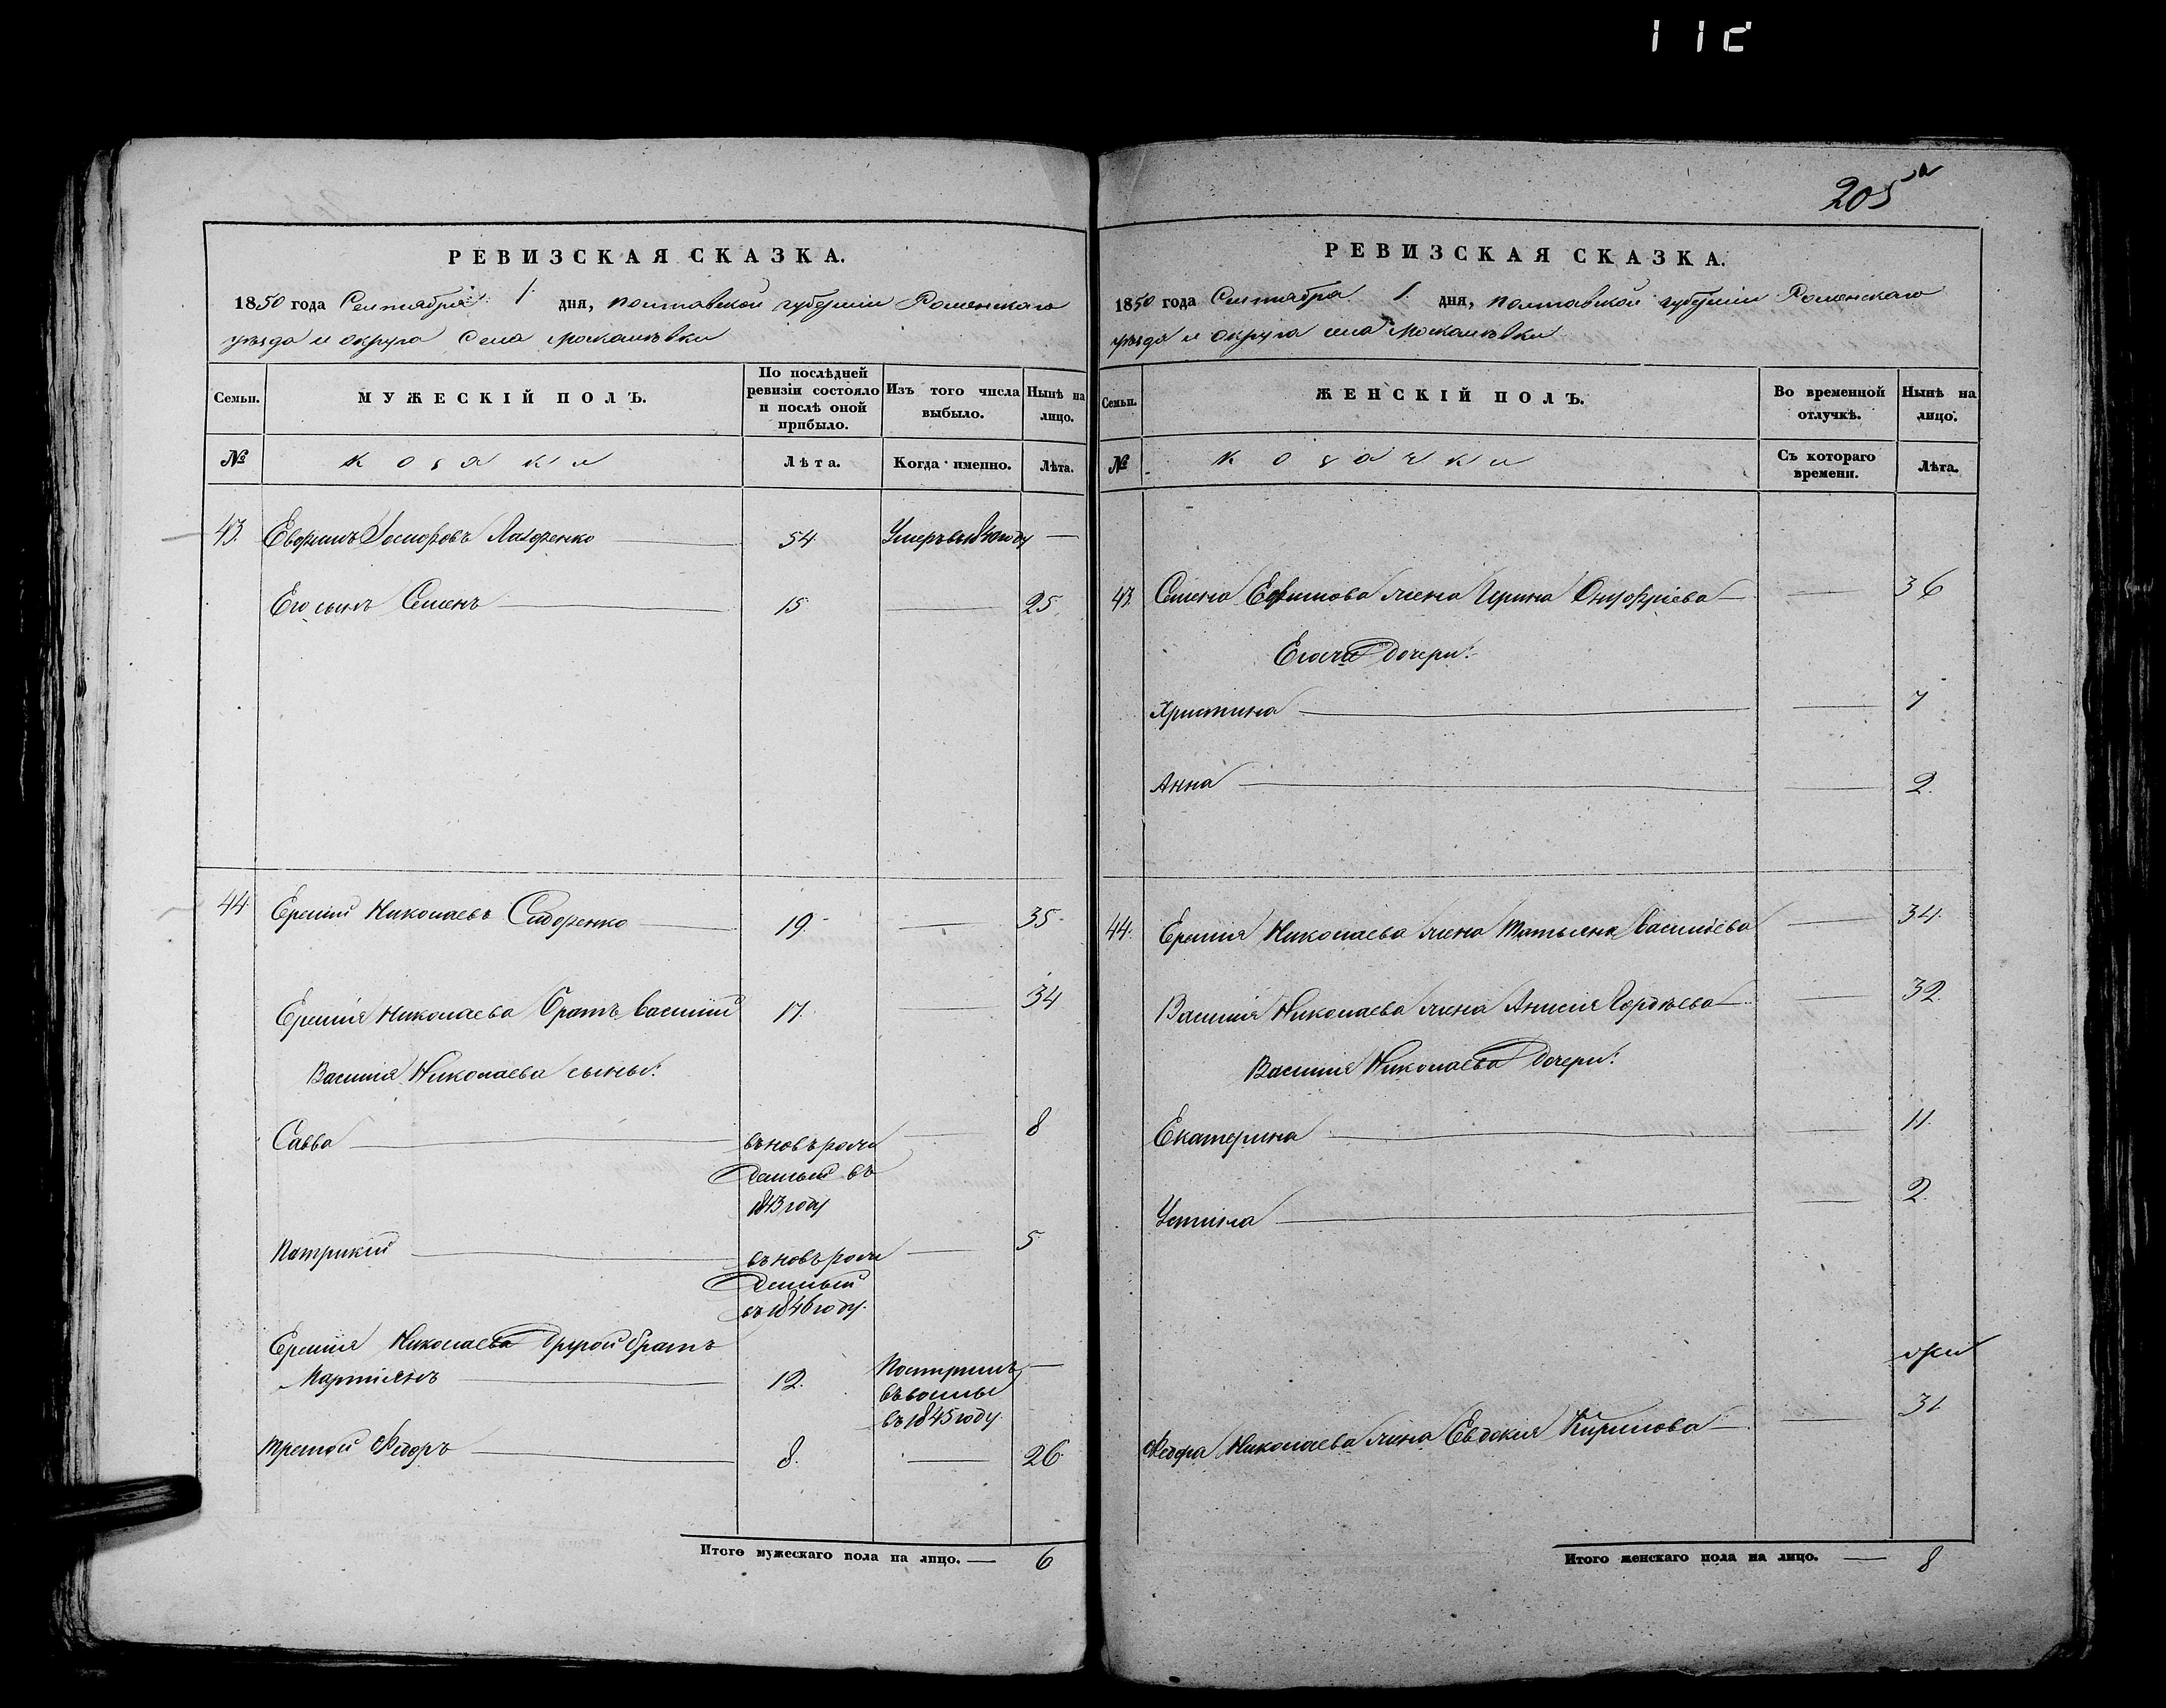 112
205
РЕВИЗСКАЯ СКАЗКА.
1850 года Сентября 1 дня, Полтавской губернии Роменскаго
уѣзда и округа Села Москалѣвки
Семьи.
МУЖЕСКІЙ ПОЛЪ.
По послѣдней
ревизіи состояло
и послѣ оной
прибыло.
Изъ того числа
выбыло.
Нынѣ на
лицо.
№
Козаки
Лѣта.
Когда именно.
Лѣта.
43. Евфимъ 54 Умеръ в 1840 году —
Его сынъ Семенъ 15 — 25.
44 Еремій Николаевъ Сидоренко 19 — 35
Еремія Николаева братъ Василій 17. — 34
Василія Николаева сыны:
Савва вновь рож — 8
денный въ
1843 году
Патрикій вновь рож — 5
денный
въ 1846 году.
Еремія Николаева другой братъ
Мартіянъ 12. Поступилъ —
въ
въ 1845 году.
третій Ѳедоръ 8. — 26
Итого мужескаго пола на лицо. — 6
РЕВИЗСКАЯ СКАЗКА.
1850 года Сентября 1. дня, Полтавской губернии Роменскаго
уѣзда и округа села Москалѣвки
Семьи.
ЖЕНСКІЙ ПОЛЪ.
Во временной
отлучкѣ.
Нынѣ на
лицо.
№
Козачки
Съ котораго
времени.
Лѣта.
43. Семена Ефимова жена Ирина Онуфріева — 36
Его же дочери:
Христина — 7
Анна — 2.
44. Еремія Николаева жена Татьяна Васильева — 34.
Василія Николаева жена Анисія Гордѣева — 32.
Василія Николаева дочери:
Екатерина — 11.
Устина — 2
Ѳедора Николаева жена Евдокия Кирилова — 31
Итого женскаго пола на лицо. — 8